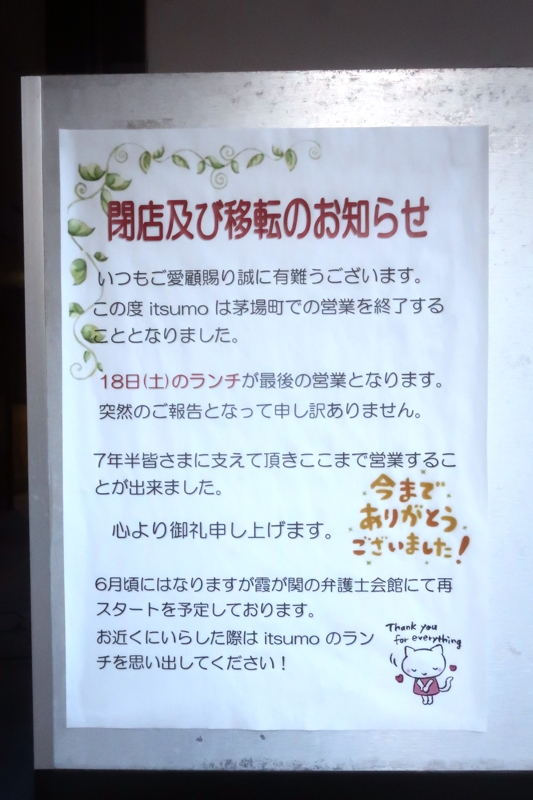 閉店及び移転のお知らせ
いつもご愛顧賜り誠に有難うございます。
この度 itsumo は茅場町での営業を終了する
こととなりました。
18日(土)のランチが最後の営業となります。
突然のご報告となって申し訳ありません。
7年半皆さまに支えて頂きここまで営業するこ
とが出来ました。
今まで
ありがとう
ございました!
心より御礼申し上げます。
6月頃にはなりますが霞が関の弁護士会館にて再
スタートを予定しております。
お近くにいらした際は itsumo のラン
チを思い出してください！
Thank you
for everything